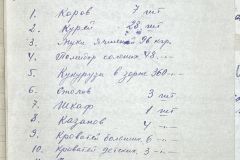 1. Коров 7 шт
2. Курей 28 шт
3. Мука ячменной 96 кгр.
4. Помидор соленых 48 -"-
5. Кукуруза в зерне 360 -"-
6. Столов 3 шт
7. Шкаф 1 шт
8. Казанов 4 -"-
9. Кроватей больших 6 -"-
10. Кроватей детских 3 -"-